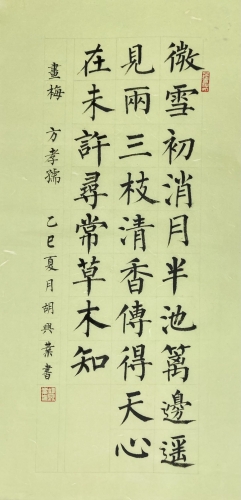 微雪初消月半池篱邊遥
見兩三枝清香傳得天心
在未許尋常草木知
畫梅 方孝孺 乙巳夏月胡興葉書